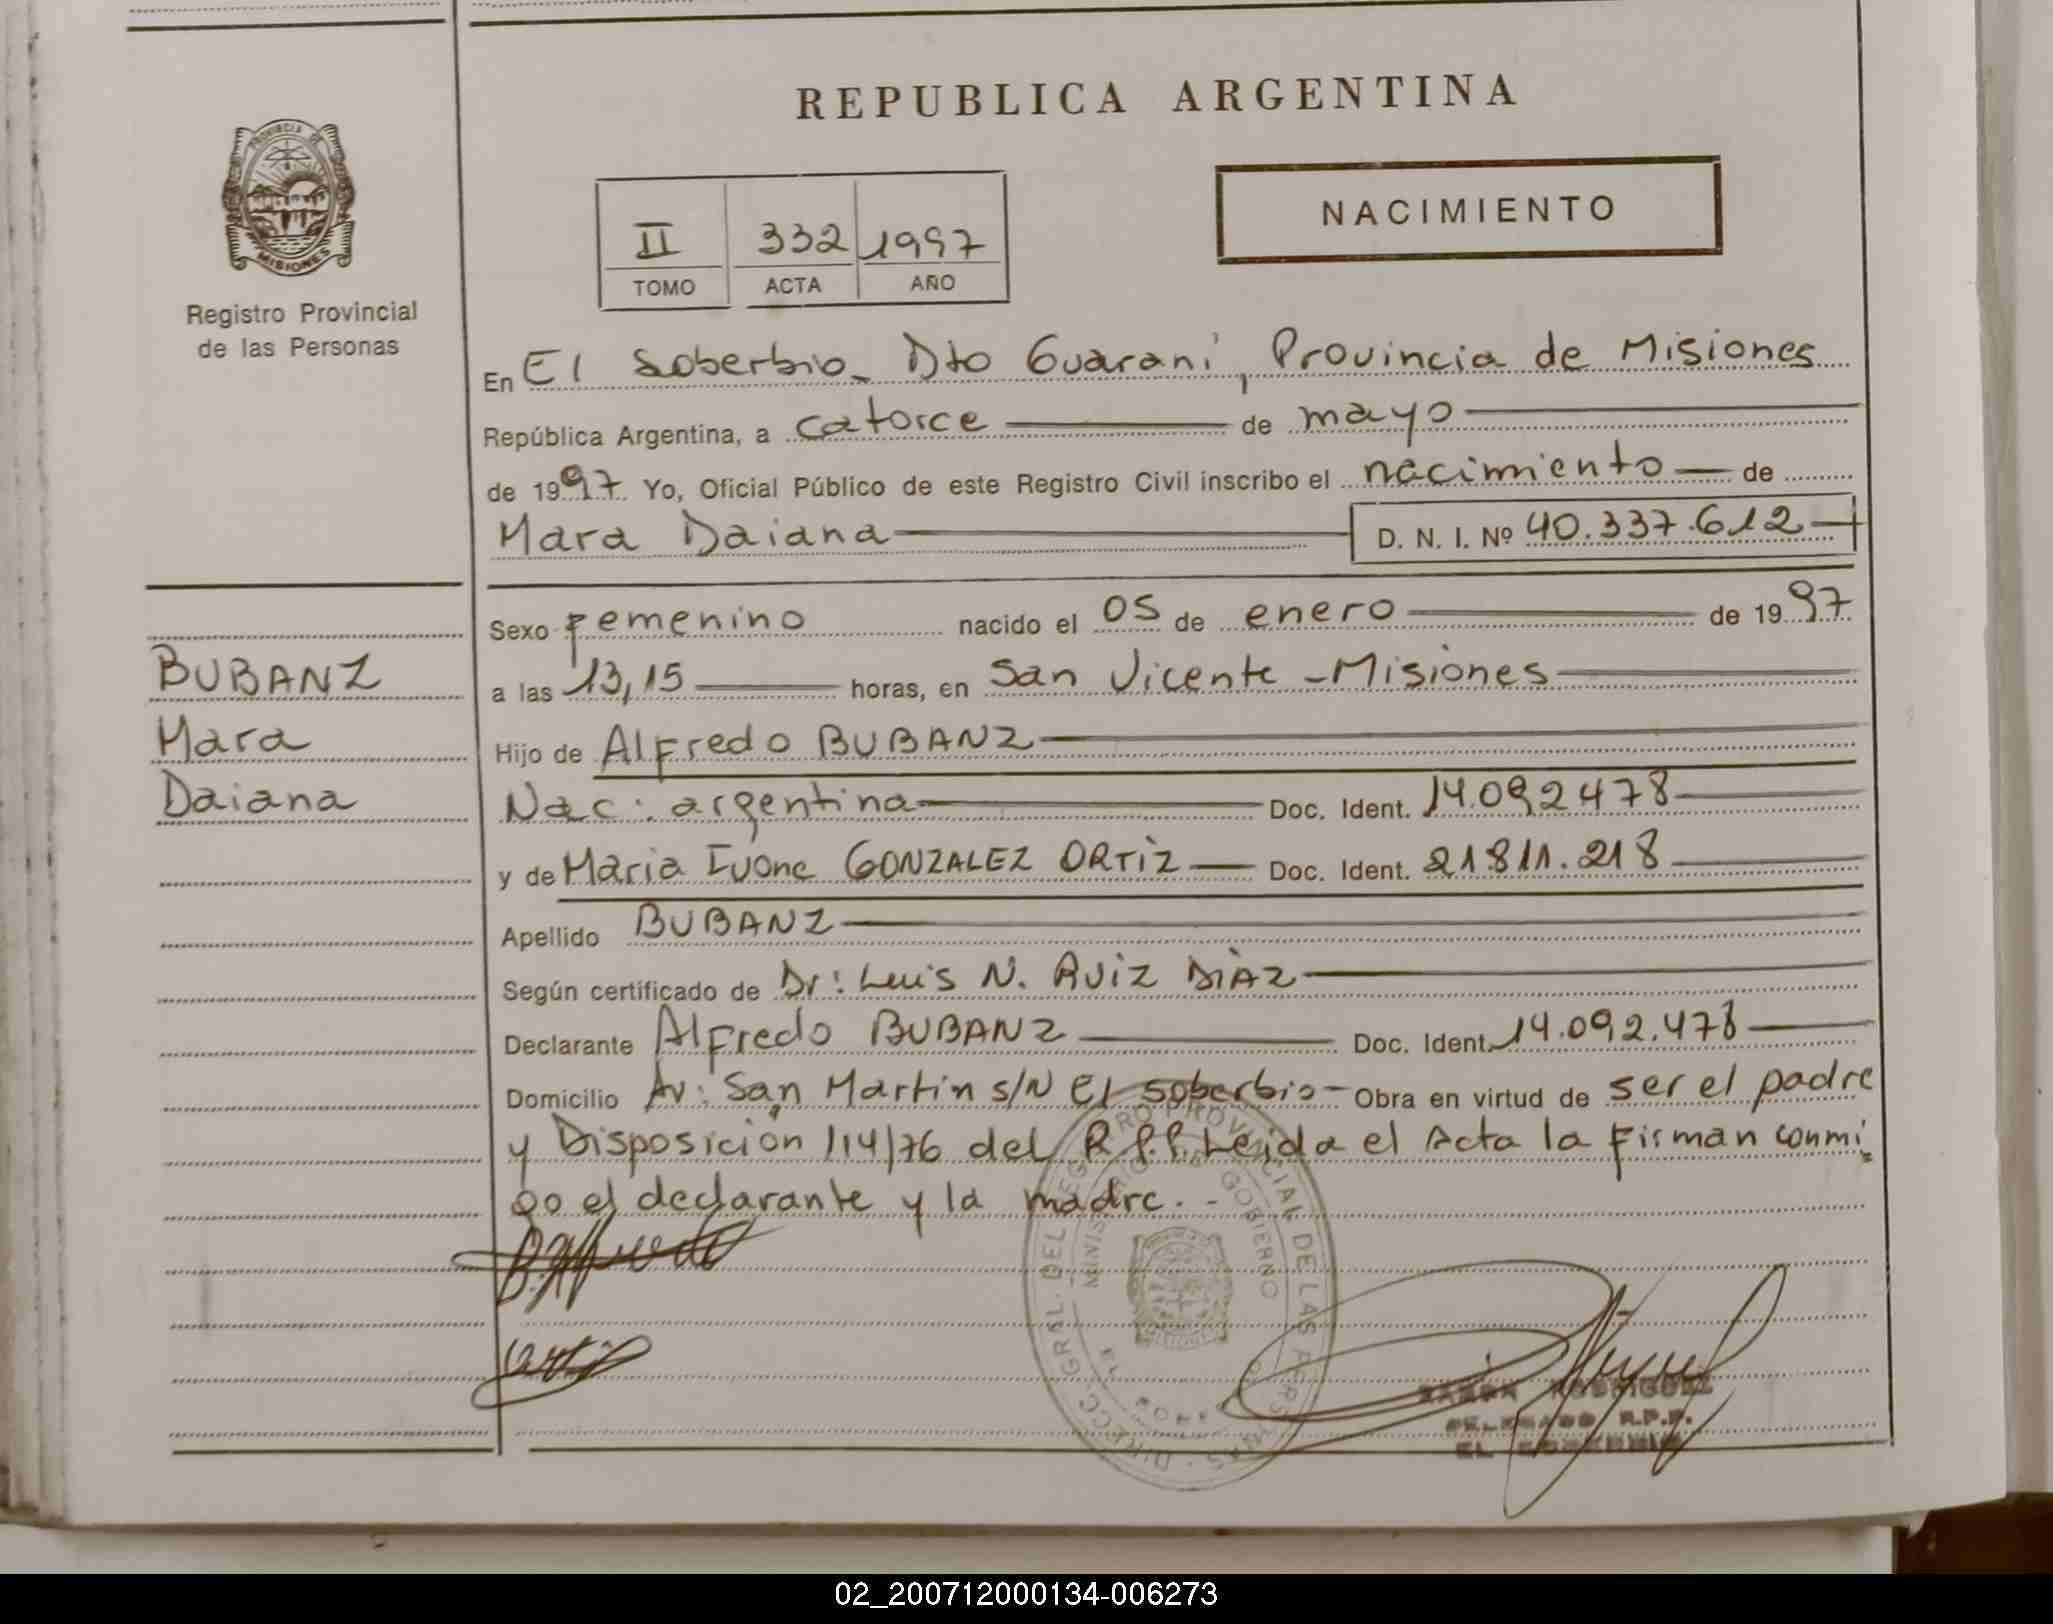 REPUBLICA ARGENTINA
PROVINCIA DE
MISIONES
Registro Provincial
de las Personas
NACIMIENTO
II 332 1997
TOMO ACTA AÑO
En El Soberbio_ Dto Guaraní, Provincia de Misiones
República Argentina, a catorce de mayo
de 1997 Yo, Oficial Público de este Registro Civil inscribo el nacimiento de
Mara Daiana D. N. I. Nº 40.337.612
Sexo Femenino nacido el 05 de enero de 1997
BUBANZ
a las 13,15 horas, en San Vicente - Misiones
Mara
Hijo de Alfredo BUBANZ
Daiana
Nac: argentina Doc. Ident. 14.092478
y de Maria Ivone GONZALEZ ORTIZ Doc. Ident. 21811.218
Apellido BUBANZ
Según certificado de Dr: Luis N. RUIZ DIAZ
Declarante Alfredo BUBANZ Doc. Ident. 14.092.478
Domicilio Av: San Martin s/N El Soberbio - Obra en virtud de ser el padre
y Disposición 114/76 del R.P.P. Leida el Acta la Firman conmi
go el declarante y la madre. -
DIRECC. GRAL. DEL REGISTRO PROVINCIAL DE LAS PERSONAS
MINISTERIO DE GOBIERNO
MISIONES
RAMON RODRIGUEZ
DELEGADO R.P.P.
EL SOBERBIO
02_200712000134-006273